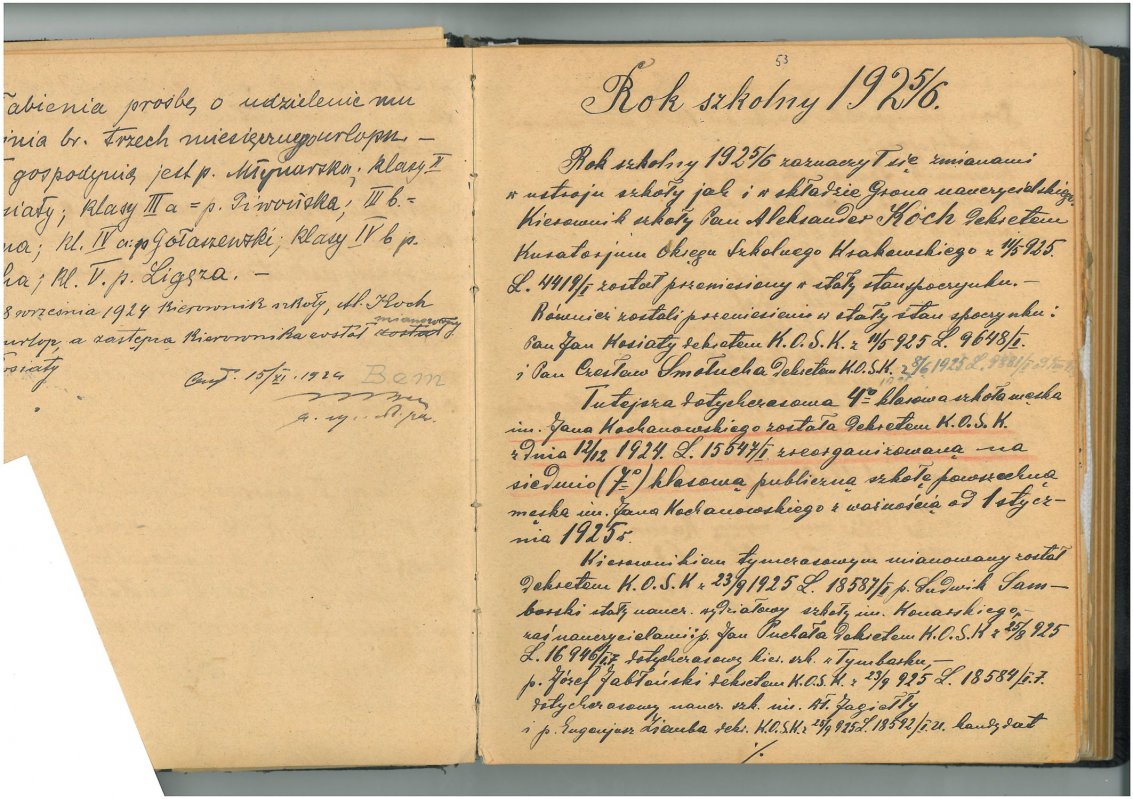 abienia prośbę o udzielenie mu
nia br. trzech miesięcznego urlopu –
gospodynią jest p. Młynarska; klasy II
siaty; klasy III a = p. Piwońska; III b. =
na; kl. IV a: p Gołaszewski; klasy IV b p.
ha; kl. V. p. Ligęza. –
8 września 1924 kierownik szkoły, Al. Koch
mianowany
urlop, a zastępcą kierownika został został
osiaty
15/XI. 1924 Bam
53
Rok szkolny 1925/6.
Rok szkolny 1925/6 zaznaczył się zmianami
w ustroju szkoły jak i w składzie Grona nauczycielskiego.
Kierownik szkoły Pan Aleksander Koch dekretem
Kuratorjum Okręgu Szkolnego Krakowskiego z 11/5 925
L. 4419/I został przeniesiony w stały stan spoczynku. –
Również zostali przeniesieni w stały stan spoczynku:
Pan Jan Kosiaty dekretem K.O.S.K. z 11/5 925 L. 9648/I.
i Pan Czesław Smołucha dekretem K.O.S.K. z 8/6 1925 L.
Tutejsza dotychczasowa 4º klasowa szkoła męska
im. Jana Kochanowskiego została dekretem K.O.S.K.
z dnia 12/12 1924. L. 15547/I zreorganizowaną na
siedmio (7º) klasową publiczną szkołę powszechną
męską im. Jana Kochanowskiego z ważnością od 1 stycz-
nia 1925 r.
Kierownikiem tymczasowym mianowany został
dekretem K.O.S.K z 23/9 1925 L. 18587/I p. Ludwik Sam–
borski stały naucz. wydziałowy szkoły im. Konarskiego,–
zaś nauczycielami: p. Jan Puchała dekretem K.O.S.K z 25/8 925
L. 16946/I.7 dotychczasowy kier. szk. w Tymbarku, –
p. Józef Jabłoński dekretem K.O.S.K. z 23/9 925 L. 18584/I.7.
dotychczasowy naucz. szk. im. Wł. Jagiełły
i p. Eugenjusz Ziamba dekr. K.O.S.K. z 25/9 925 L. 18592/I u. kandydat
./.